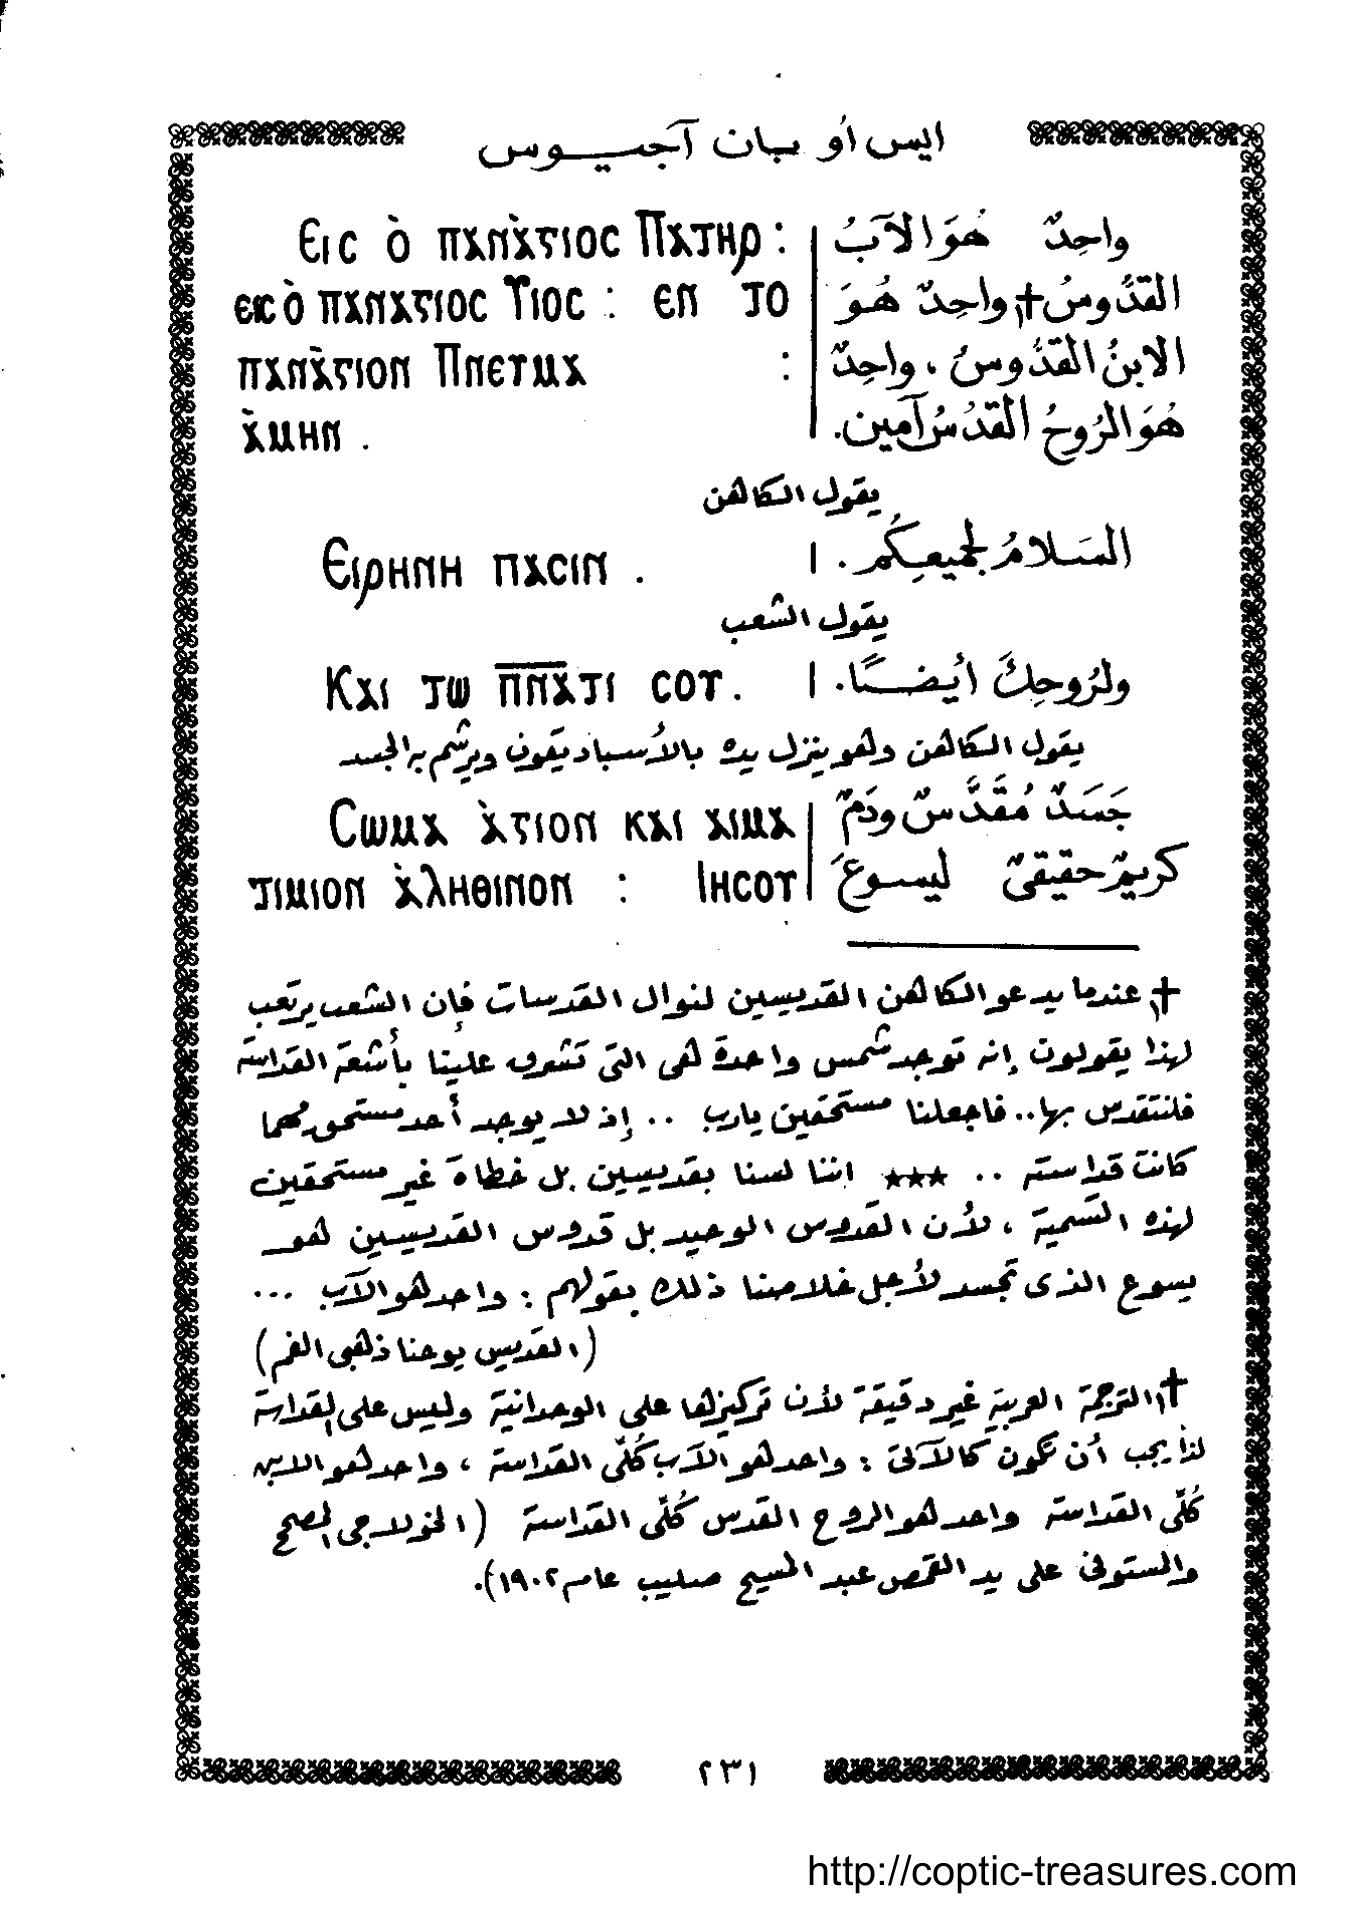 ايس اُو بـان آجيـــوس
Ⲉⲓⲥ ⲟ̀ ⲡⲁⲛⲁ̀ⲅⲓⲟⲥ Ⲡⲁⲧⲏⲣ :
ⲉⲓⲥ ⲟ̀ ⲡⲁⲛⲁⲅⲓⲟⲥ Ⲩⲓⲟⲥ : ⲉⲛ ⲧⲟ
ⲡⲁⲛⲁ̀ⲅⲓⲟⲛ Ⲡⲛⲉⲩⲙⲁ :
ⲁ̀ⲙⲏⲛ .
واحِدٌ هُوَ الآبُ
القدُّوسُ ✝١ واحِدٌ هُوَ
الابنُ القدُّوسُ ، واحِدٌ
هُوَ الرُوحُ القدُسُ آمين.
يقول الكاهن
Ⲉⲓⲣⲏⲛⲏ ⲡⲁⲥⲓⲛ . | السَلامُ لجميعِكُم .
يقول الشعب
Ⲕⲁⲓ ⲧⲱ ⲡ̅ⲛ̅ⲁ̅ⲧⲓ ⲥⲟⲩ . | ولرُوحِكَ أيضـًا .
يقول الكاهن وهو ينزل يده بالأسباديقون ويرشم به الجسد
Ⲥⲱⲙⲁ ⲁ̀ⲅⲓⲟⲛ ⲕⲁⲓ ⲁⲓⲙⲁ
ⲧⲓⲙⲓⲟⲛ ⲁ̀ⲗⲏⲑⲓⲛⲟⲛ : Ⲓⲏⲥⲟⲩ
جَسَدٌ مُقَدَّسٌ ودَمٌ
كريمٌ حقيقىٌ ليسـوعَ
✝١ عندما يدعو الكاهن القديسين لنوال القدسات فإن الشعب يرتعب
لهذا يقولون إنه توجد شمس واحدة هى التى تشرق علينا بأشعة القداسة
فلنتقدس بها.. فاجعلنا مستحقين يارب .. إذ لا يوجد أحد مستحق مهما
كانت قداسته .. ★★★ اننا لسنا بقديسين بل خطاة غير مستحقين
لهذه التسمية ، لأن القدوس الوحيد بل قدوس القديسين هو
يسوع الذى تجسد لأجل خلاصنا ذلك بقولهم : واحد هو الآب ...
(القديس يوحنا ذهبى الفم)
✝١ الترجمة العربية غير دقيقة لأن تركيزها على الوحدانية وليس على القداسة
لذا يجب أن تكون كالآتى : واحد هو الآب كُلّى القداسة ، واحد هو الابن
كُلّى القداسة واحد هو الروح القدس كُلّى القداسة (الخولاجى المصحح
والمستوفى على يد القمص عبد المسيح صليب عام ١٩٠٢).
٢٣١
http://coptic-treasures.com